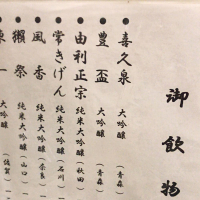 御飲物
●喜久泉 大吟醸（青森）
●豊盃 大吟醸（青森）
●由利正宗 純米大吟醸（秋田）
●常きげん 純米大吟醸（石川）
●風香 純米大吟醸（奈良）
●獺祭 純米大吟醸（山口）
一 大吟醸（佐賀）